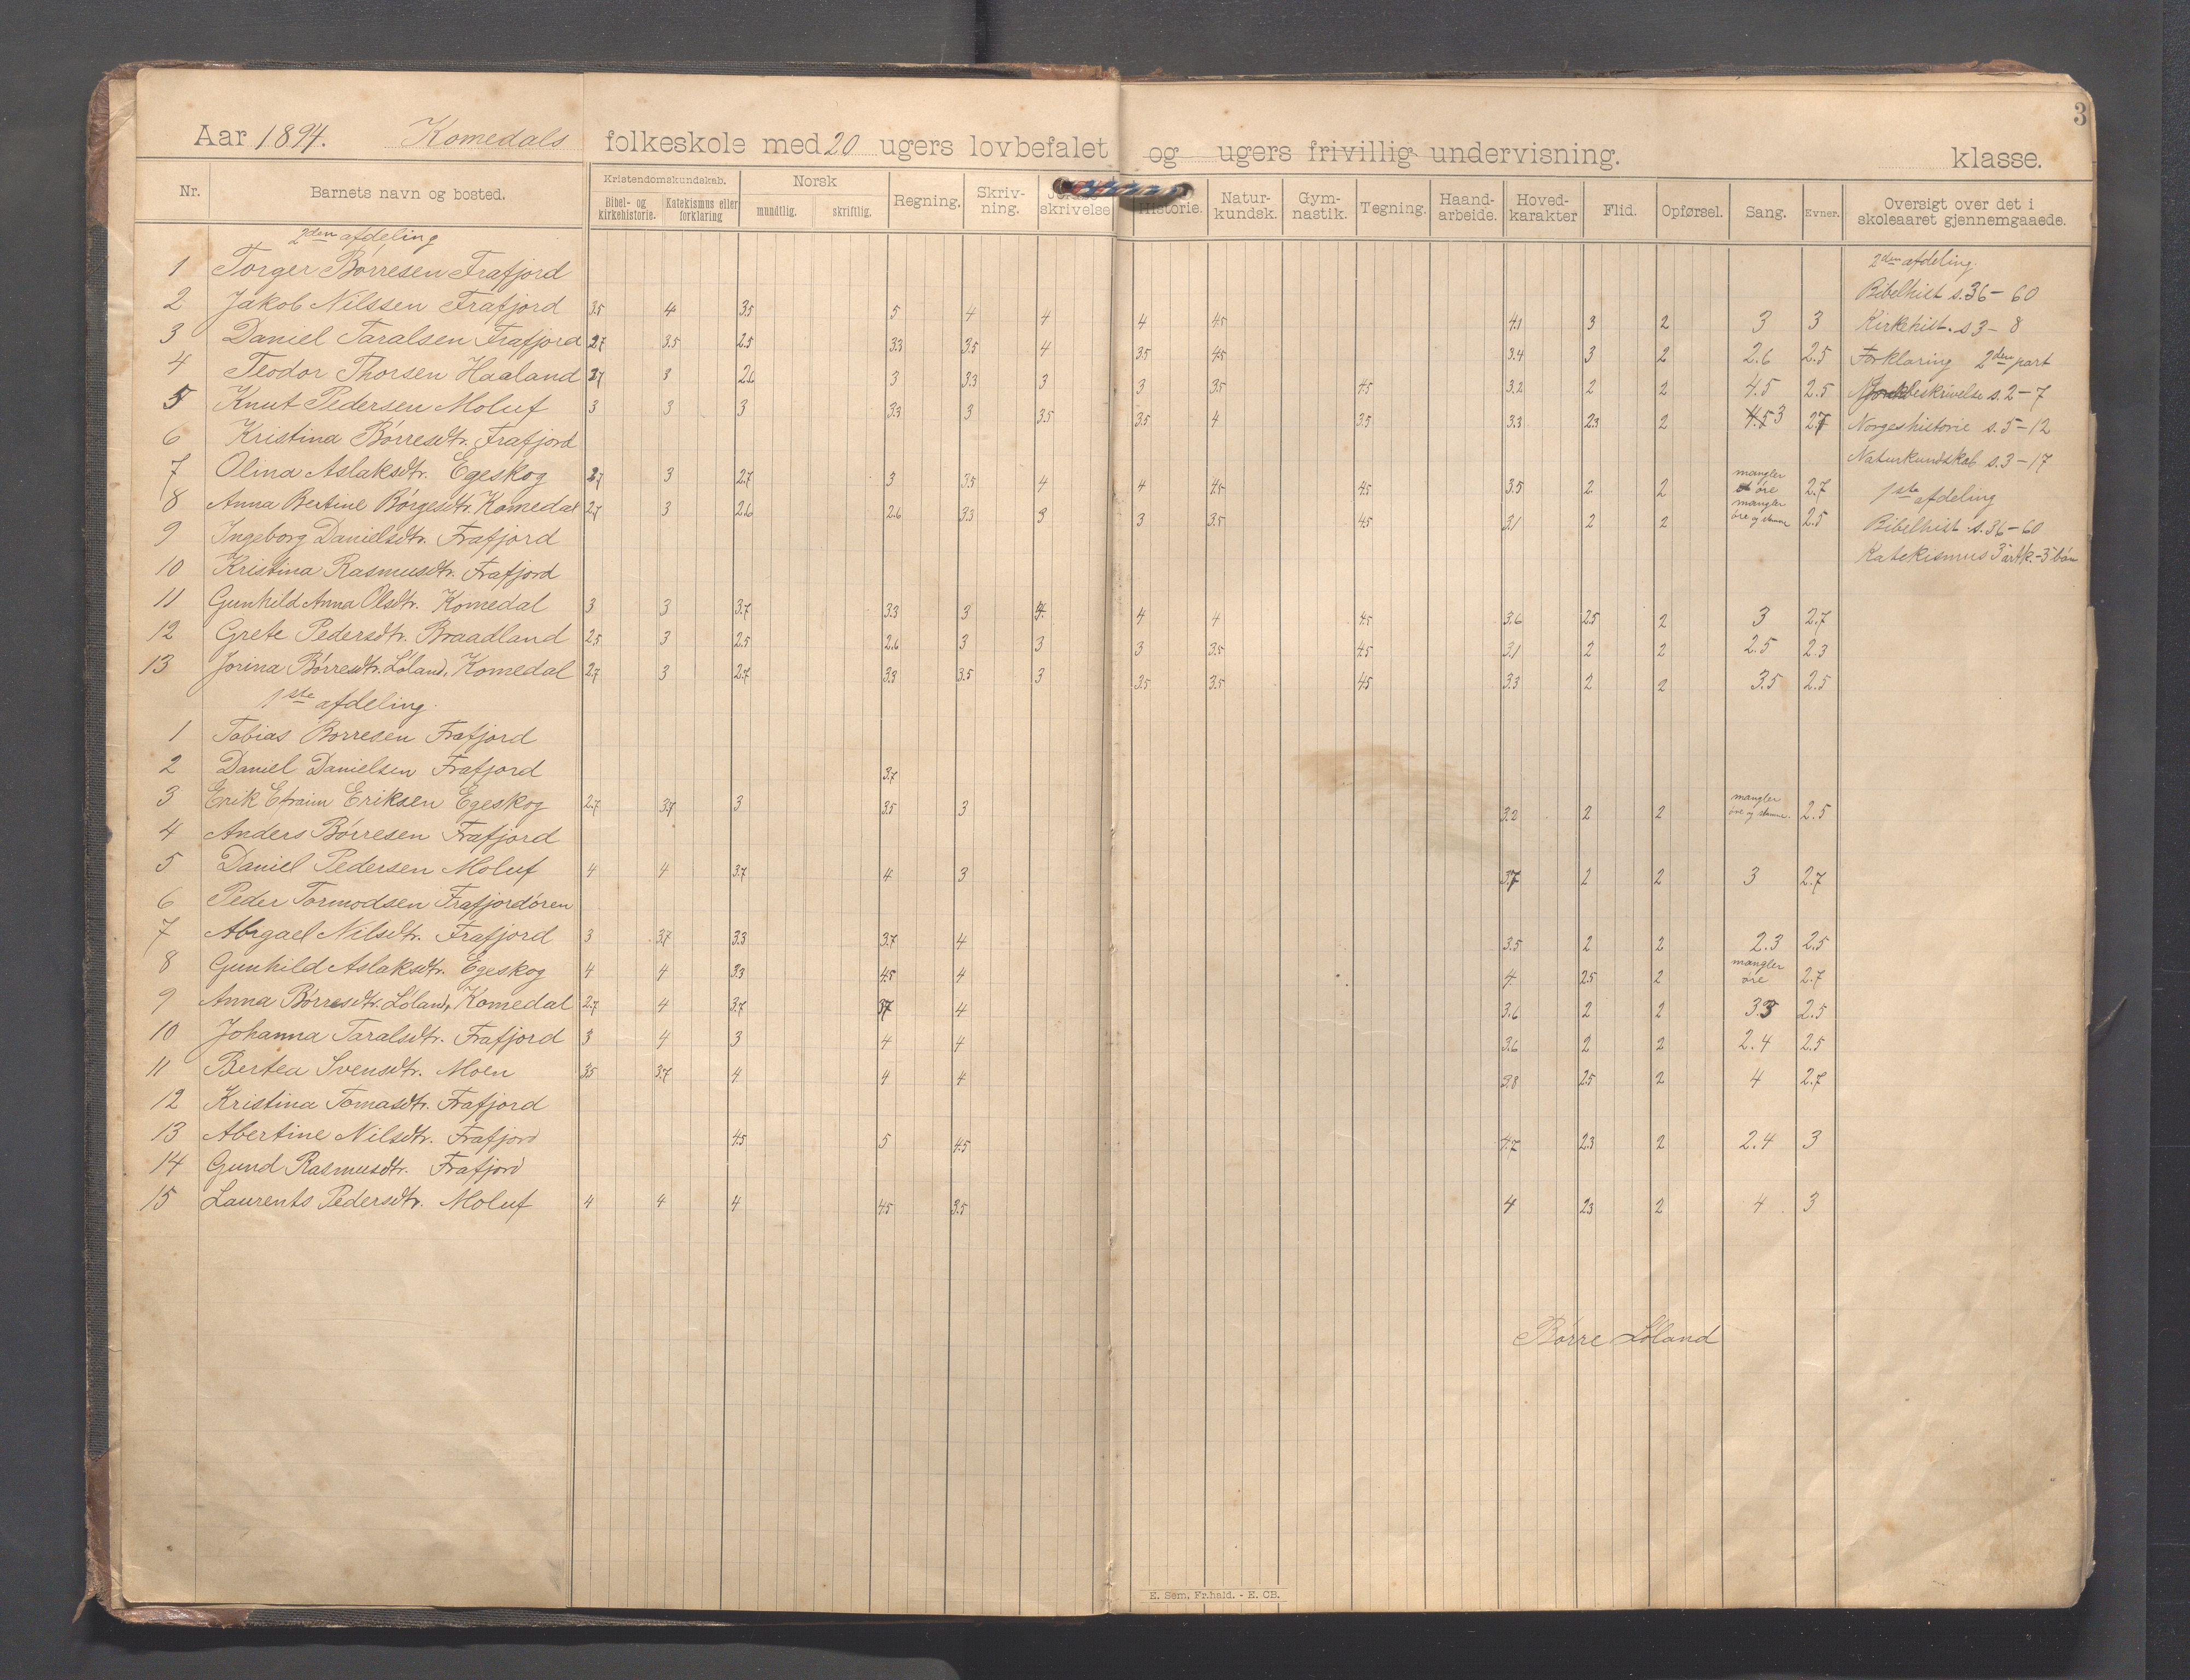 3
Aar 1894. Komedals folkeskole med 20 ugers lovbefalet og ugers frivillig undervisning. klasse.
Nr. Barnets navn og bosted. Kristendomskundskab. Bibel- og kirkehistorie. Katekismus eller forklaring Norsk mundtlig. skriftlig. Regning. Skriv-ning. skrivelse Historie. Natur-kundsk. Gym-nastik. Tegning. Haand-arbeide. Hoved-karakter Flid. Opførsel. Sang. Evner. Oversigt over det i skoleaaret gjennemgaaede.
2den afdeling
1 Torger Børresen Frafjord
2 Jakob Nilssen Frafjord 3.5 4 3.5 5 4 4 4 4.5 4.1 3 2 3 3
3 Daniel Taralsen Frafjord 2.7 3.5 2.5 3.3 3.5 4 3.5 4.5 3.4 3 2 2.6 2.5
4 Teodor Thorsen Haaland 2.7 3 2.6 3 3.3 3 3 3.5 4.5 3.2 2 2 4.5 2.5
5 Knut Pedersen Moluf 3 3 3 3.3 3 3.5 3.5 4 3.5 3.3 2.3 2 4.5 3 2.7
6 Kristina Børresdtr. Frafjord
7 Olina Aslaksdtr. Egeskog 2.7 3 2.7 3 3.5 4 4 4.5 4.5 3.5 2 2 mangler øre 2.7
8 Anna Bertine Børgesdtr. Komedal 2.7 3 2.6 2.6 3.3 3 3 3.5 4.5 3.1 2 2 mangler øre og stemme 2.5
9 Ingeborg Danielsdtr. Frafjord
10 Kristina Rasmusdtr. Frafjord
11 Gunhild Anna Olsdtr. Komedal 3 3 3.7 3.3 3 4 4 4 4.5 3.6 2.5 2 3 2.7
12 Grete Pedersdtr. Braadland 2.5 3 2.5 2.6 3 3 3 3.5 4.5 3.1 2 2 2.5 2.3
13 Jorina Børresdtr. Løland, Komedal 2.7 3 2.7 3.3 3.5 3 3.5 3.5 4.5 3.3 2 2 3.5 2.5
1ste afdeling.
1 Tobias Børresen Frafjord
2 Daniel Danielsen Frafjord 3.7
3 Erik Efraim Eriksen Egeskog 2.7 3.7 3 3.5 3 3.2 2 2 mangler øre og stemme. 2.5
4 Anders Børresen Frafjord
5 Daniel Pedersen Moluf 4 4 3.7 4 3 3.7 2 2 3 2.7
6 Peder Tormodsen Frafjordøren
7 Abigael Nilsdtr. Frafjord 3 3.7 3.3 3.7 4 3.5 2 2 2.3 2.5
8 Gunhild Aslaksdtr. Egeskog 4 4 3.3 4.5 4 4 2.5 2 mangler øre 2.7
9 Anna Børresdtr. Løland, Komedal 2.7 4 3.7 3.7 4 3.6 2 2 3.3 2.5
10 Johanna Taralsdtr. Frafjord 3 4 3 4 4 3.6 2 2 2.4 2.5
11 Bertea Svensdtr. Moen 3.5 3.7 4 4 4 3.8 2.5 2 4 2.7
12 Kristina Tomasdtr. Frafjord
13 Abertine Nilsdtr. Frafjord 4.5 5 4.5 4.7 2.3 2 2.4 3
14 Gund Rasmusdtr. Frafjord
15 Laurents Pedersdtr. Moluf 4 4 4 4.5 3.5 4 2.3 2 4 3
2den afdeling.
Bibelhist s. 36-60
Kirkehist. s 3-8
Forklaring 2den part
Jordbeskrivelse s. 2-7
Norgeshistorie s. 5-12
Naturkundskab s. 3-17
1ste afdeling
Bibelhist s. 36-60
Katekismus 3 artk.-3 bøn
Børre Løland
E. Sem. Fr.hald. - E. CB.